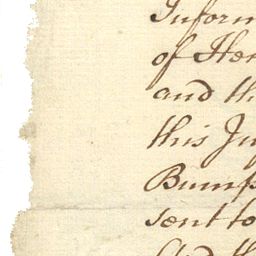 Inform
of Hen
and th
this Ju
Bump
sent to